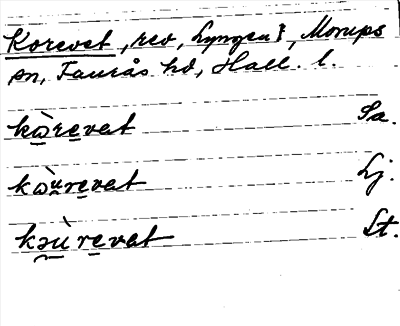 Korevet, rev, Lyngen }, Morups
sn, Faurås hd, Hall. l.
kɷ̀revet Sa.
kɷ̀u̯revet Lj.
kəù̯revet St.